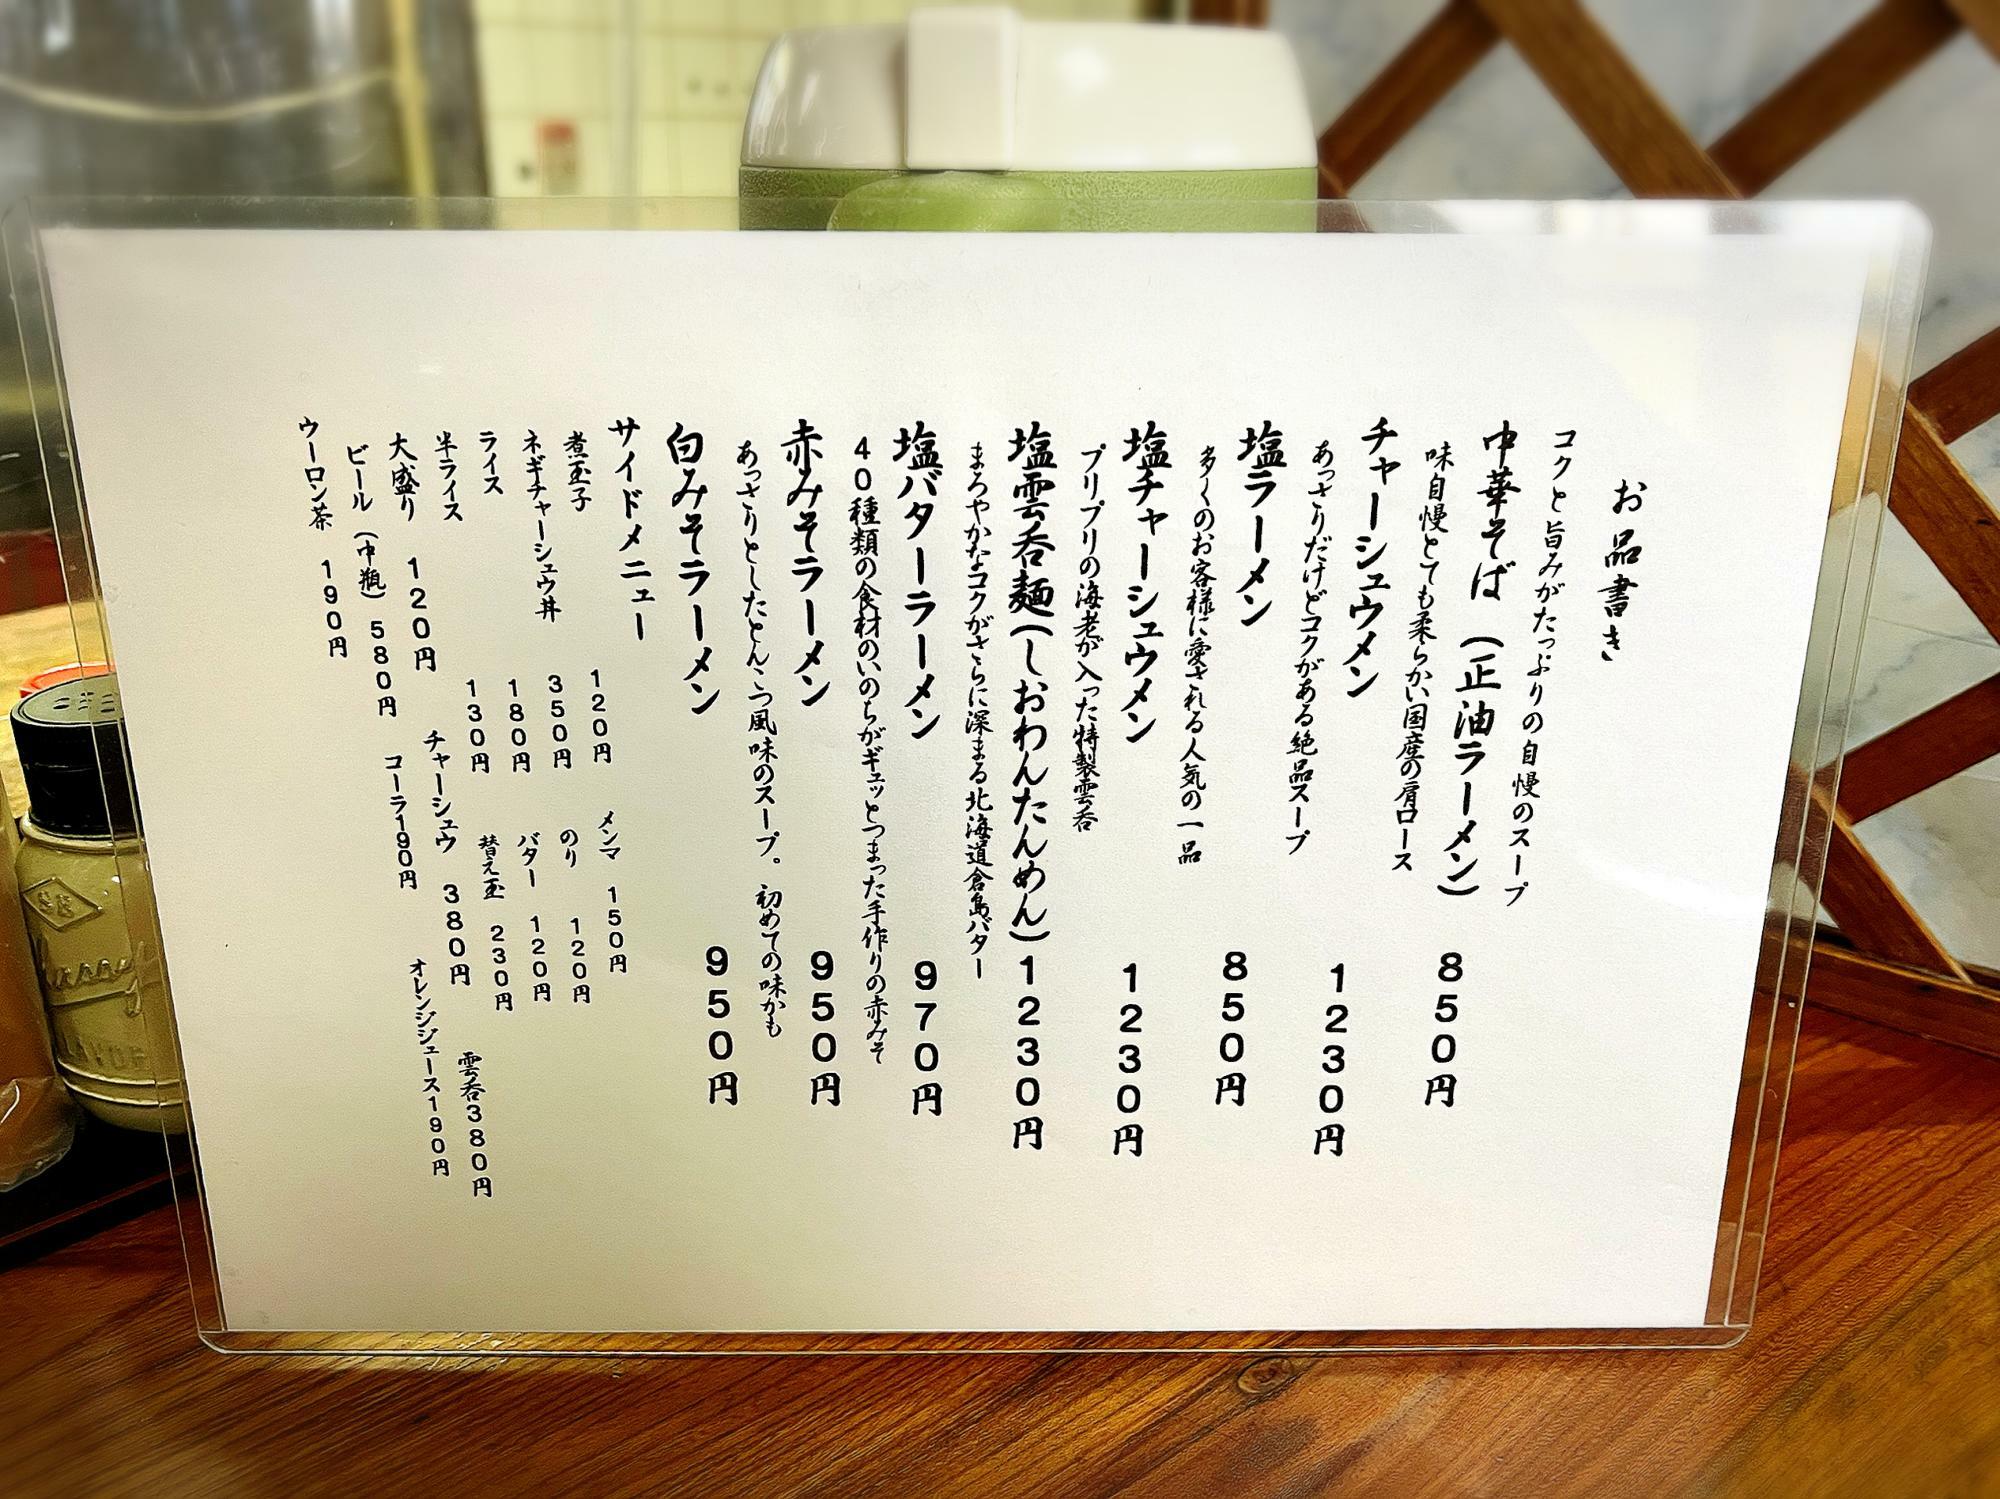 お品書き
コクと旨みがたっぷりの自慢のスープ
中華そば（正油ラーメン） 850円
味自慢とても柔らかい国産の肩ロース
チャーシュウメン 1230円
あっさりだけどコクがある絶品スープ
塩ラーメン 850円
多くのお客様に愛される人気の一品
塩チャーシュウメン 1230円
プリプリの海老が入った特製雲呑
塩雲呑麺（しおわんたんめん） 1230円
まろやかなコクがさらに深まる北海道倉島バター
塩バターラーメン 970円
40種類の食材のいのちがギュッとつまった手作りの赤みそ
赤みそラーメン 950円
あっさりとしたとんこつ風味のスープ。初めての味かも
白みそラーメン 950円
サイドメニュー
煮玉子 120円 メンマ 150円
ネギチャーシュウ丼 350円 のり 120円
ライス 180円 バター 120円
半ライス 130円 替え玉 230円 雲呑380円
大盛り 120円 チャーシュウ 380円
ビール（中瓶）580円 コーラ190円 オレンジジュース190円
ウーロン茶 190円